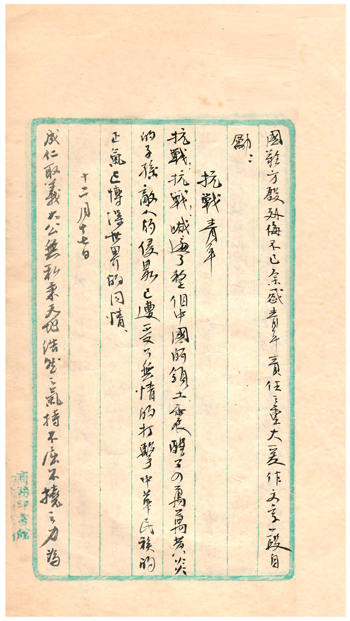 國難方殷外侮不已余感青年責任之重大爰作文章一段自
勵：
抗戰青年
抗戰，抗戰，喊遍了整個中國的領土，震醒了四萬萬黃炎
的子孫，敵人的侵略已遭受了無情的打擊，中華民族的
正氣已博得世界的同情。
十二月十七日
成仁取義大公無私秉天地浩然之氣持不屈不撓之力為